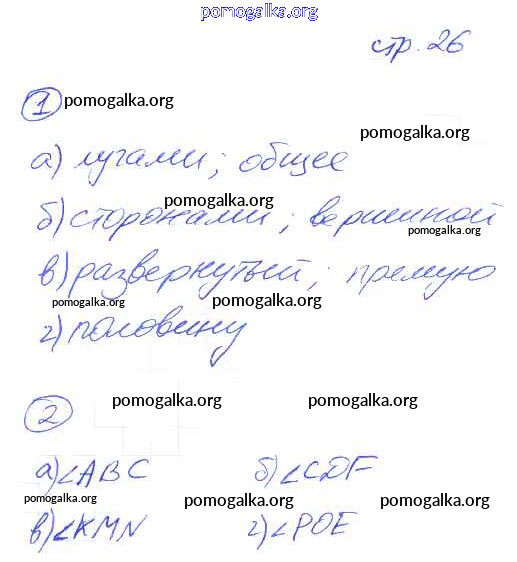 pomogalka.org
стр. 26
1 pomogalka.org
pomogalka.org
а) лугами; общее
pomogalka.org
б) сторонами; вершиной
pomogalka.org
в) развернутый; премую
pomogalka.org pomogalka.org
г) половину
pomogalka.org
2
pomogalka.org
а) ∠ABC б) ∠CDF
pomogalka.org pomogalka.org pomogalka.org
в) ∠KMN г) ∠POE